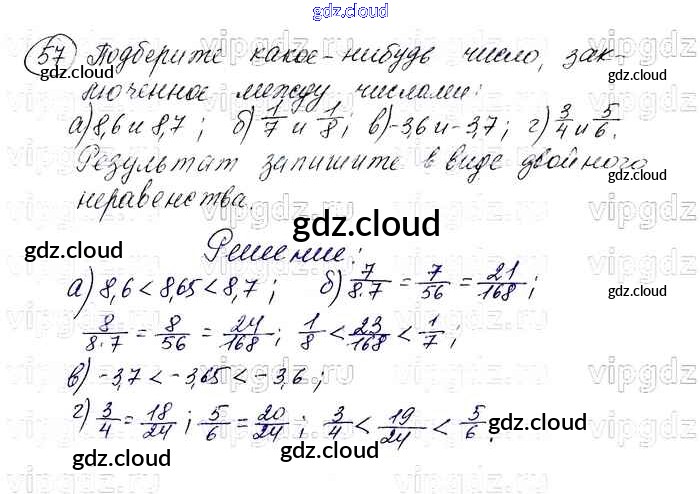 gdz.cloud
57 Подберите какое-нибудь число, зак-
люченное между числами:
а) 8,6 и 8,7; б) 1/7 и 1/8; в) -3,6 и -3,7; г) 3/4 и 5/6.
Результат запишите в виде двойного
неравенства.
Решение:
а) 8,6 < 8,65 < 8,7; б) 7/8·7 = 7/56 = 21/168;
8/8·7 = 8/56 = 24/168; 1/8 < 23/168 < 1/7;
в) -3,7 < -3,65 < -3,6;
г) 3/4 = 18/24; 5/6 = 20/24; 3/4 < 19/24 < 5/6.
gdz.cloud
gdz.cloud
gdz.cloud
gdz.cloud
gdz.cloud
gdz.cloud
gdz.cloud
gdz.cloud
gdz.cloud
gdz.cloud
vipgdz.ru